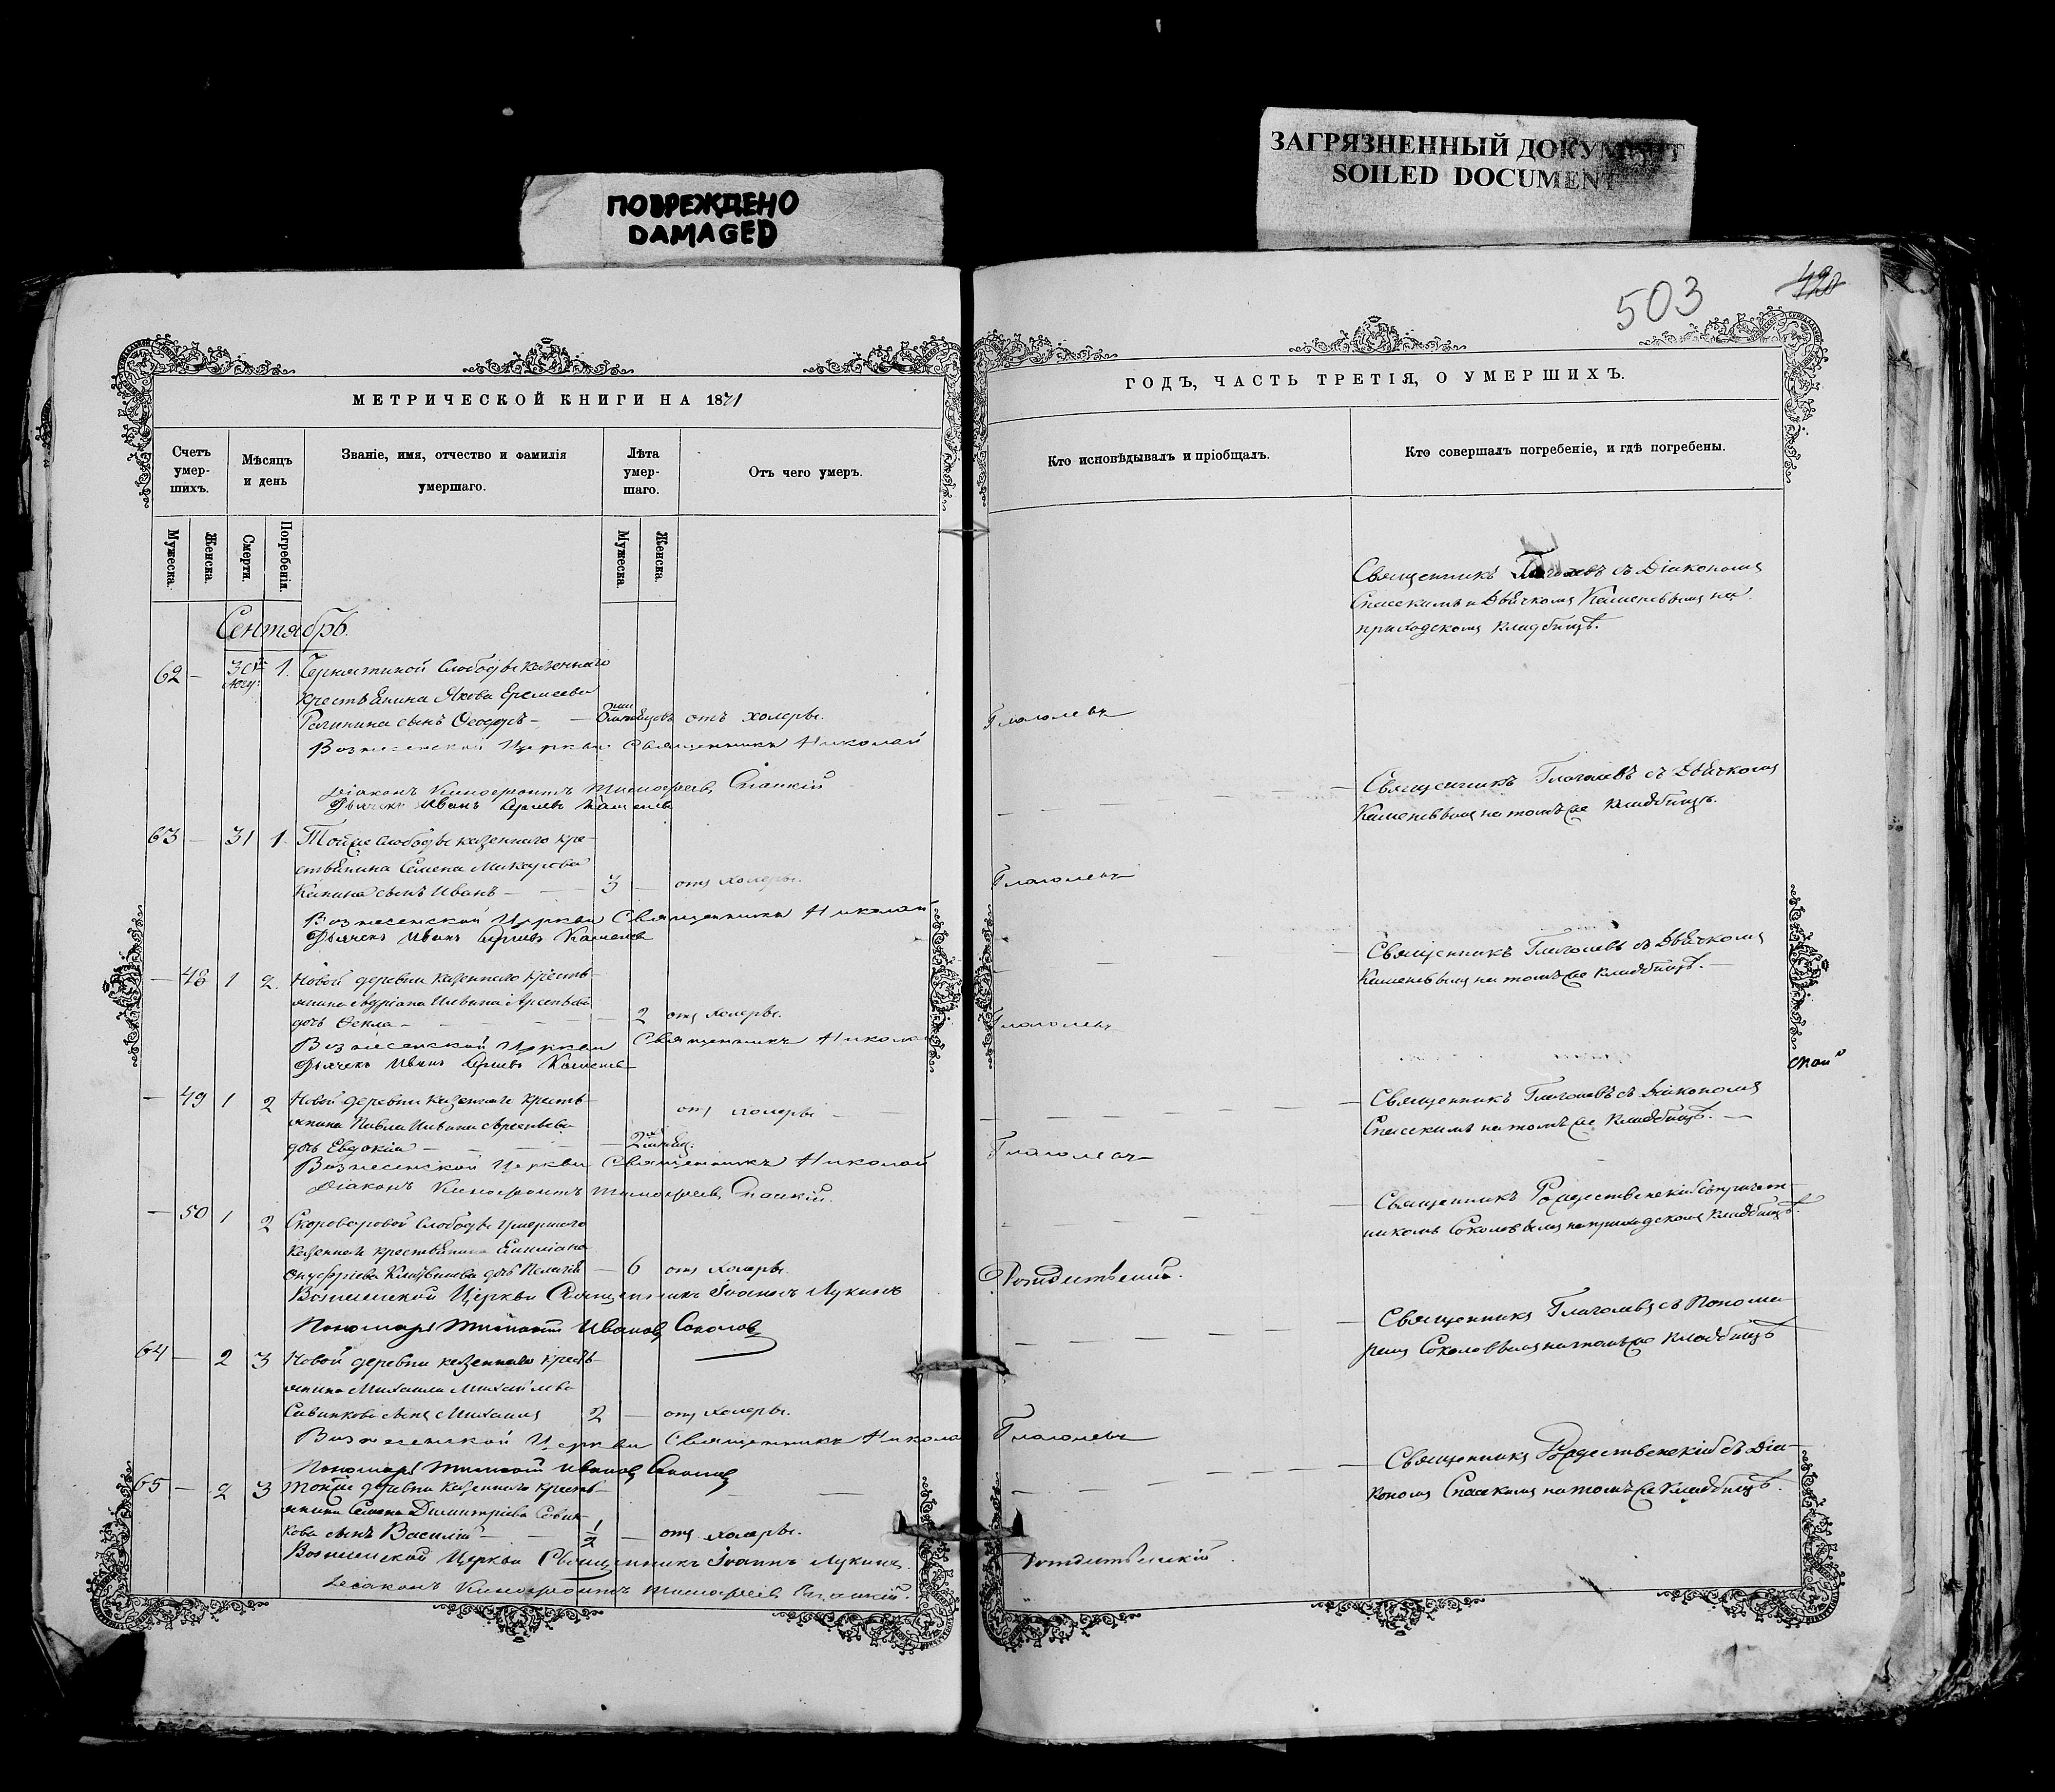 ПОВРЕЖДЕНО
DAMAGED
ЗАГРЯЗНЕННЫЙ ДОКУМЕНТ
SOILED DOCUMENT
503
МЕТРИЧЕСКОЙ КНИГИ НА 1871
Счетъ умер-шихъ.
Мѣсяцъ и день
Званіе, имя, отчество и фамилія умершаго.
Лѣта умер-шаго.
Отъ чего умеръ.
Мужеска.
Женска.
Смерти.
Погребенія.
Мужеска.
Женска.
Сентябрь.
62 — 30 Авгу: 1. слободы казеннаго
крестьянина Якова Еремеева
сынъ Ѳеодоръ — отъ холеры.
Вознесенской Церкви Священникъ Николай
Діаконъ Ксенофонтъ Тимофеевъ Спасскій
Дьячекъ Иванъ Каменевъ
63 — 31 1. Тойже слободы казеннаго кре-
стьянина Семена
сынъ Иванъ — 3 — отъ холеры.
Вознесенской Церкви Священникъ Николай
Дьячекъ Иванъ Каменевъ
— 48 1 2. Новой деревни казеннаго кресть-
янина
дочь Ѳекла — 2 отъ холеры.
Вознесенской Церкви Священникъ Николай
Дьячекъ Иванъ Каменевъ
— 49 1 2 Новой деревни казеннаго кресть-
янина Павла отъ холеры
дочь Евдокія —
Вознесенской Церкви Священникъ Николай
Діаконъ Ксенофонтъ Тимофеевъ Спасскій.
— 50 1 2 слободы умершаго
казеннаго крестьянина
дочь — 6 отъ холеры.
Вознесенской Церкви Священникъ Іоаннъ Лукинъ
Пономарь Ивановъ Соколовъ
64 — 2 3 Новой деревни казеннаго кресть-
янина Михаила Михайлова
Савинкова сынъ Михаилъ 2 — отъ холеры.
Вознесенской Церкви Священникъ Николай
Пономарь Ивановъ Соколовъ
65 — 2 3 Тойже деревни казеннаго кресть-
янина Семена Димитріева Савин-
кова сынъ Василій — 1/2 — отъ холеры.
Вознесенской Церкви Священникъ Іоаннъ Лукинъ
Діаконъ Ксенофонтъ Тимофеевъ Спасскій.
ГОДЪ, ЧАСТЬ ТРЕТІЯ, О УМЕРШИХЪ.
Кто исповѣдывалъ и пріобщалъ.
Кто совершалъ погребеніе, и гдѣ погребены.
Священникъ Глаголевъ съ Діакономъ
Спасскимъ и Дьячкомъ Каменевымъ на
приходскомъ кладбищѣ.
Глаголевъ
Священникъ Глаголевъ съ Дьячкомъ
Каменевымъ на томъ же кладбищѣ.
Глаголевъ
Священникъ Глаголевъ съ Дьячкомъ
Каменевымъ на томъ же кладбищѣ.
Глаголевъ
Священникъ Глаголевъ съ Діакономъ
Спасскимъ на томъ же кладбищѣ.
Глаголевъ
Священникъ Рождественскій съ причет-
никомъ Соколовымъ на приходскомъ кладбищѣ.
Рождественскій.
Священникъ Глаголевъ съ Понома-
ремъ Соколовымъ на томъ же кладбищѣ
Глаголевъ
Священникъ Рождественскій съ Діа-
кономъ Спасскимъ на томъ же кладбищѣ.
Рождественскій.